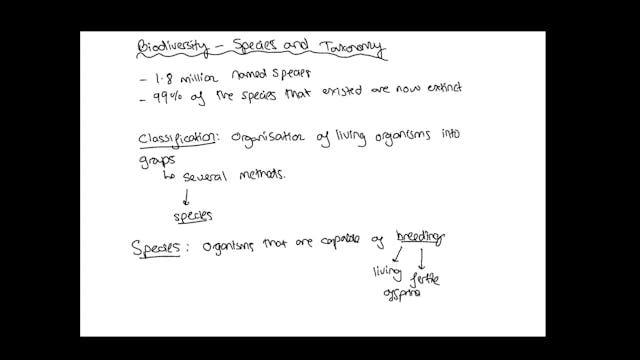 Biodiversity - Species and Taxonomy
- 1.8 million named species
- 99% of the species that existed are now extinct
Classification: Organisation of living organisms into
groups
↳ several methods.
↓
species
Species: Organisms that are capable of breeding
living fertile
offspring